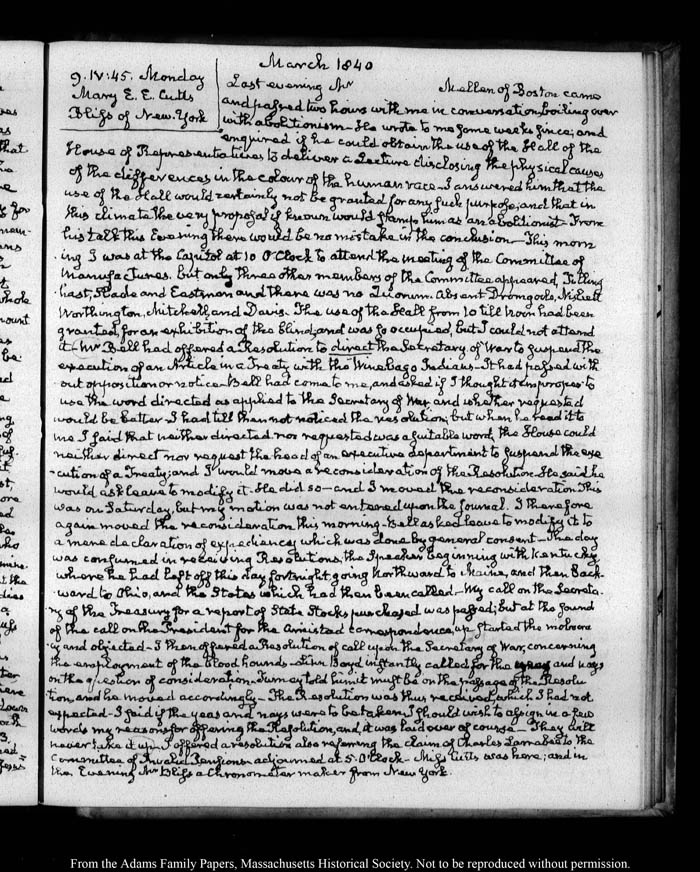 March 1840
9. IV:45. Monday
Mary E. E. Cutts
Bliss of New-York
Last evening Mr Mellen of Boston came
and passed two hours with me in conversation, boiling over
with abolitionism - He wrote to me some weeks since; and
enquired if he could obtain the use of the Hall of the
House of Representatives to deliver a Lecture disclosing the physical causes
of the differences in the colour of the human race - I answered him that the
use of the Hall would certainly not be granted for any such purpose; and that in
this climate the very proposal if known would stamp him as an abolitionist - From
his talk this Evening there would be no mistake in the conclusion - This morn
ing I was at the Capitol at 10 O'Clock to attend the meeting of the Committee of
Manufactures. but only three other members of the Committee appeared, Tilling
hast, Slade and Eastman and there was no Quorum. Absent Dromgoole, Nisbett
Worthington, Mitchell, and Davis. The use of the Hall from 10 till Noon had been
granted, for an exhibition of the blind, and was so occupied, but I could not attend
it - Mr Bell had offered a Resolution to direct the Secretary of War to suspend the
execution of an Article in a Treaty with the Winebago Indians - It had passed with
out opposition or notice - Bell had come to me, and asked if I thought it improper to
use the word directed as applied to the Secretary of War and whether requested
would be better - I had till then not noticed the resolution; but when he read it to
me I said that neither directed nor requested was a suitable word, the House could
neither direct nor request the head of an executive department to suspend the exe
cution of a Treaty; and I would move a reconsideration of the Resolution. He said he
would ask leave to modify it - He did so - and I moved the reconsideration. This
was on Saturday, but my motion was not entered upon the Journal. I therefore
again moved the reconsideration this morning - Bell asked leave to modify it to
a mere declaration of expediency, which was done by general consent - The day
was consumed in receiving Resolutions, the Speaker beginning with Kentucky
where he had left off this day fortnight going Northward to Maine, and then Back-
ward to Ohio, and the States which had then been called - My call on the Secreta-
ry of the Treasury for a report of State Stocks purchased was passed; but at the sound
of the call on the President for the Amistad correspondence, up started the mobocra
cy and objected - I then offered a Resolution of call upon the Secretary of War, concerning
the employment of the blood hounds - Linn Boyd instantly called for the yeas and nays
on the question of consideration. Turney told him it must be on the passage of the Resolu
tion, and he moved accordingly - The Resolution was thus received, which I had not
expected - I said if the yeas and nays were to be taken I should wish to assign in a few
words my reasons for offering the Resolution, and it was laid over of course - They will
never take it up. I offered a resolution also referring the claim of Charles Larrabee to the
Committee of Invalid Pensions. adjourned at 5 O'Clock - Miss Cutts was here; and in
the Evening Mr Bliss a Chronometer maker from New York.
From the Adams Family Papers, Massachusetts Historical Society. Not to be reproduced without permission.